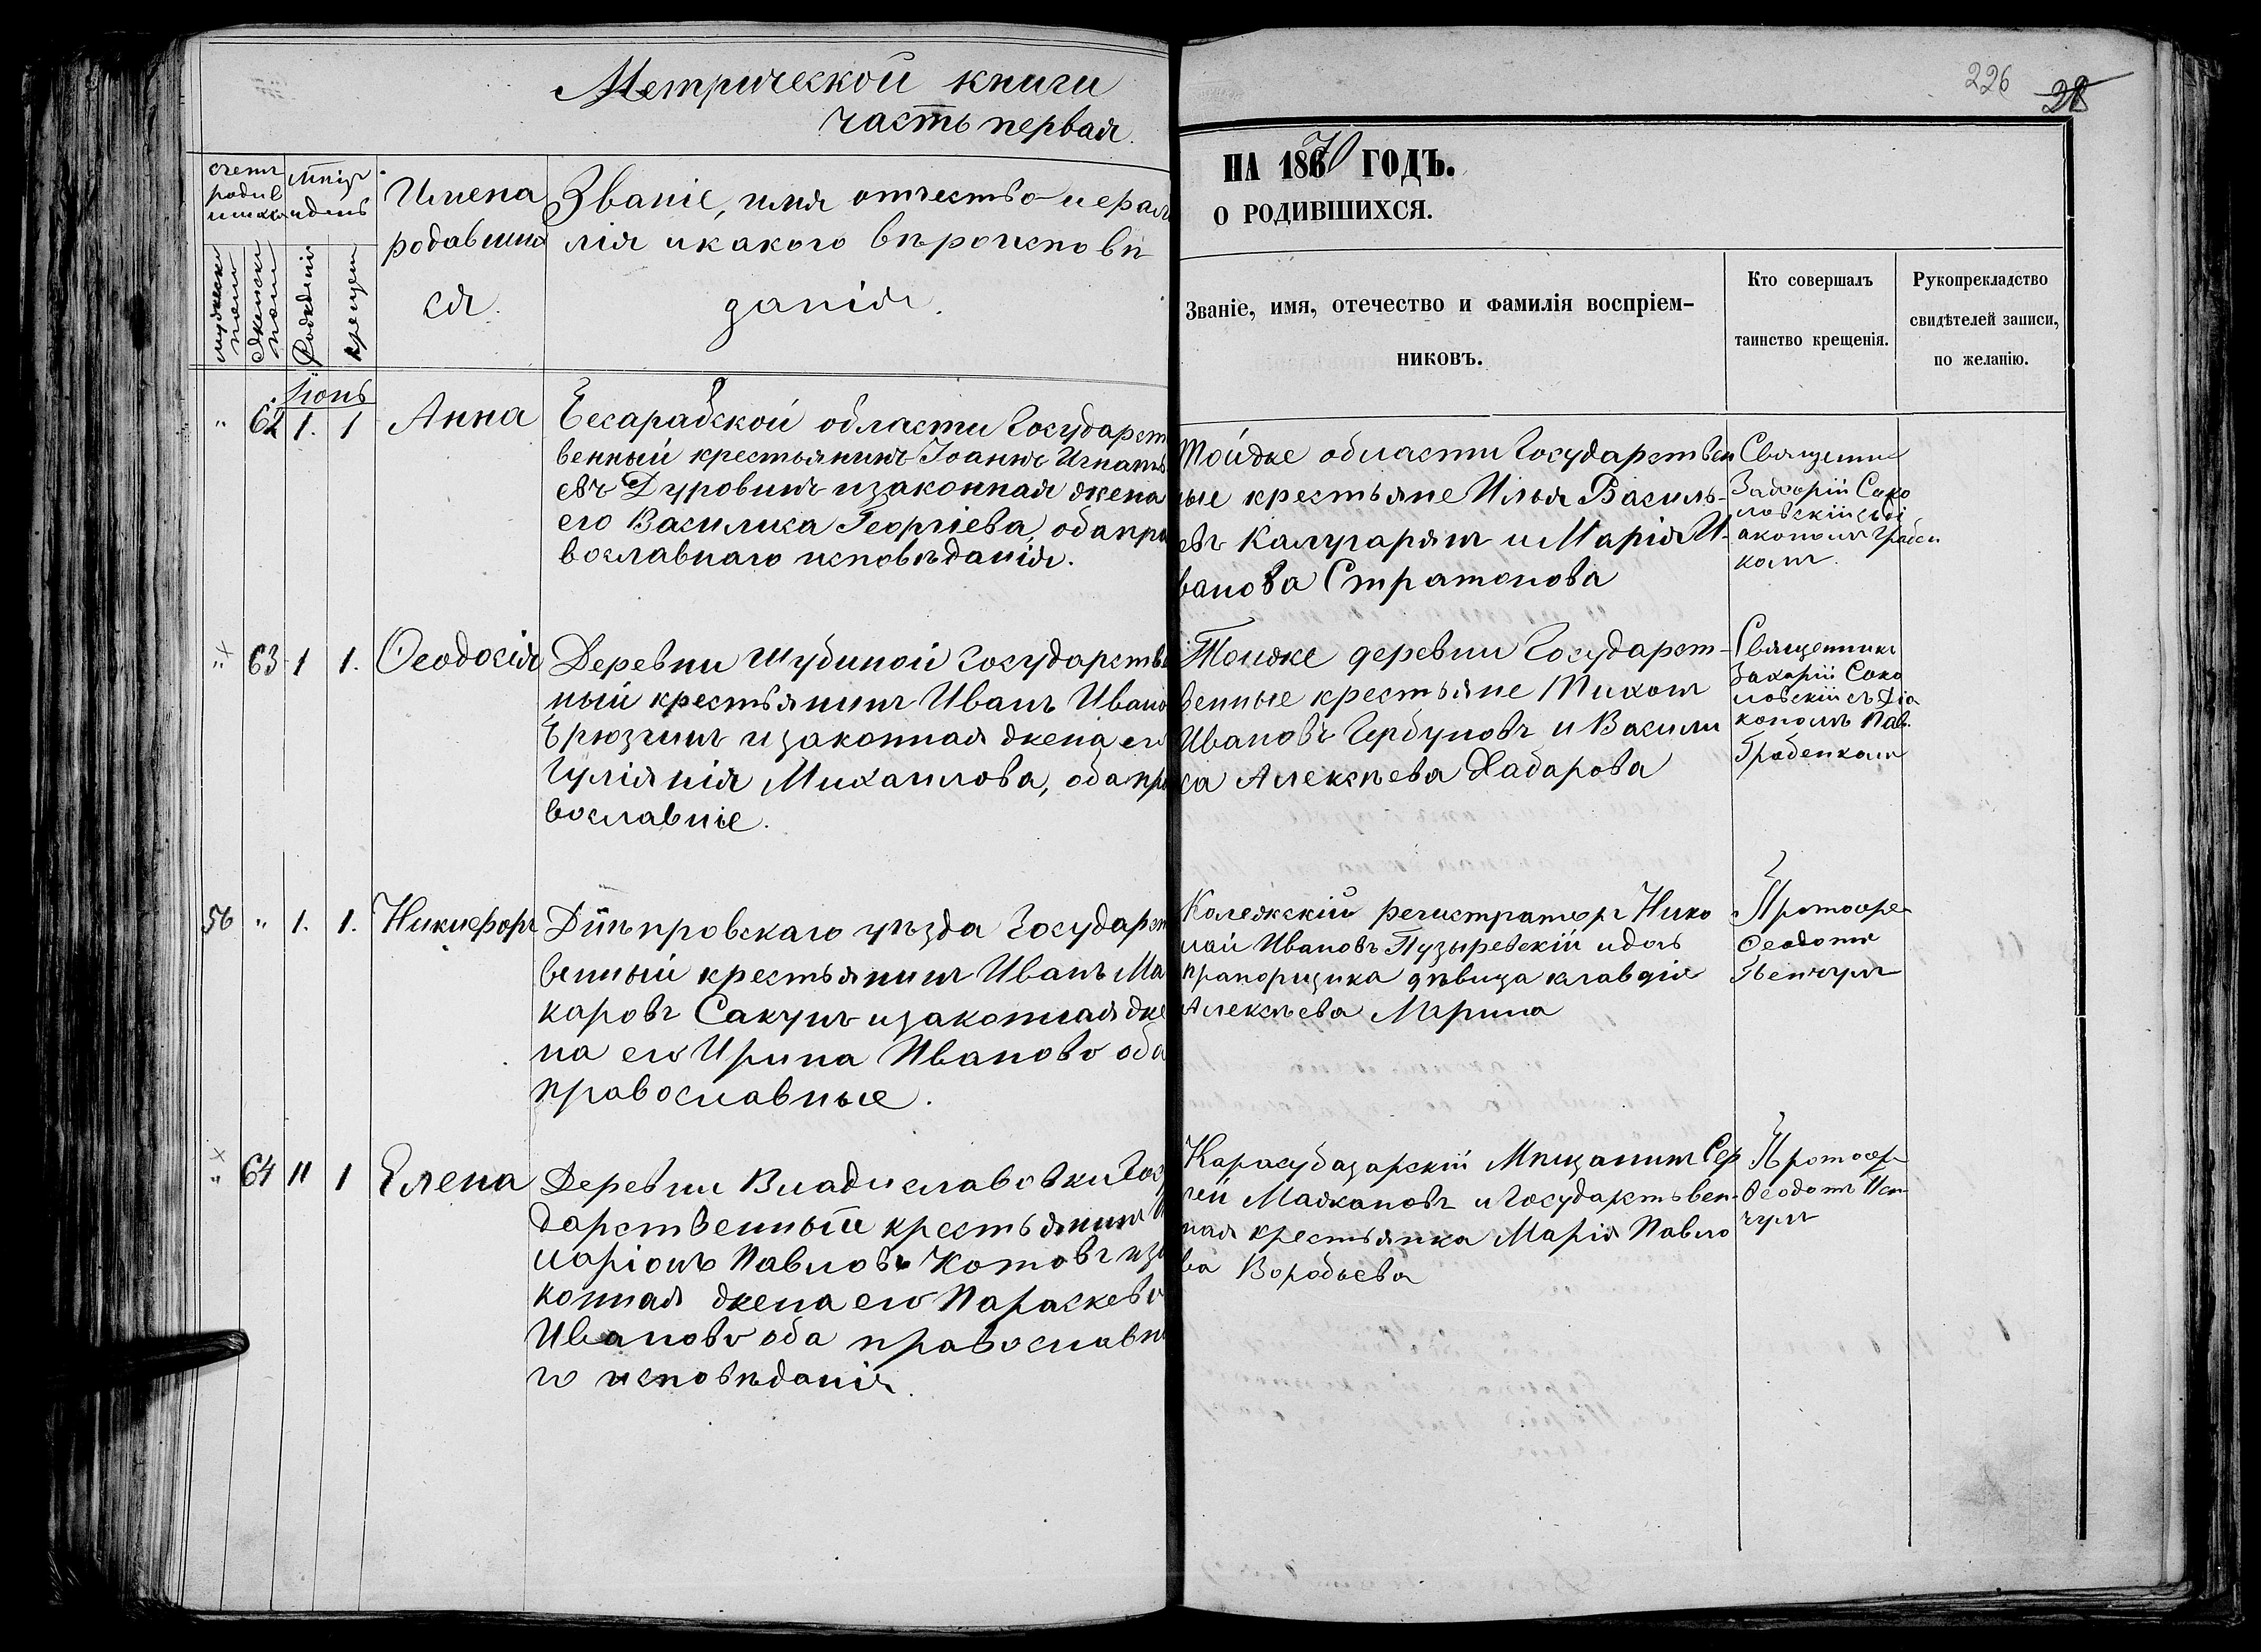 Метрической книги
часть первая.
226 28
НА 1870 ГОДЪ.
О РОДИВШИХСЯ.
счетъ
родив
шихся
мѣсяцъ
и день
Имена
родавших
ся.
Званіе, имя отчество и фами
лія и какого вѣроисповѣ
данія.
мужеска
пола
женска
пола
Рожденія
крещен
Званіе, имя, отечество и фамилія воспріем-
никовъ.
Кто совершалъ
таинство крещенія.
Рукоприкладство
свидѣтелей записи,
по желанію.
Іюнь
" 62 1. 1 Анна
Бесарабской области Государст
венный крестьянинъ Іоаннъ Игнатъ
евъ Дуровинъ и законная жена
его Василиса Георгіева, оба пра
вославнаго исповѣданія.
Тойже области Государствен
ные крестьяне Илья Василь-
евъ Калугарянъ и Марія И-
ванова Стратонова
Священни
Захарій Соко
ловскій съ ді
акономъ Гребен
комъ.
" 63 1 1. Ѳеодосія
Деревни Шубиной Государстве
ный крестьянинъ Иванъ Ивано
Брюзгинъ и законная жена его
Гуліянія Михаилова, оба пра
вославніе.
Тоиже деревни Государст-
венные крестьяне Тихонъ
Ивановъ Гербуновъ и Васили
са Алексѣева Хабарова
Священникъ
Захарій Соко
ловскій съ Діа
кономъ Пав.
Гребенкомъ
56 " 1. 1. Никифоръ
Днѣпровскаго уѣзда Государст
венный крестьянинъ Иванъ Ма
каровъ Сакунъ и законная же
на его Ирина Иваново оба
православные.
Колежскій регистраторъ Нико
лай Ивановъ Пузыревскій и дочь
прапорщика дѣвица клавдія
Алексѣева Марина
Протоіре
Ѳеодотъ
" 64 11 1 Елена
Деревни Владиславовки Госу
дарственный крестьянинъ И
ларіонъ Павловъ Котовъ и за
конная жена его Параскево
Иваново оба православна
го исповѣданія.
Карасубазарскій Мѣщанинъ Сер
гей Мажановъ и Государствен-
ная крестьянка Марія Павло
ва Воробьева
Протоіер
Ѳеодотъ